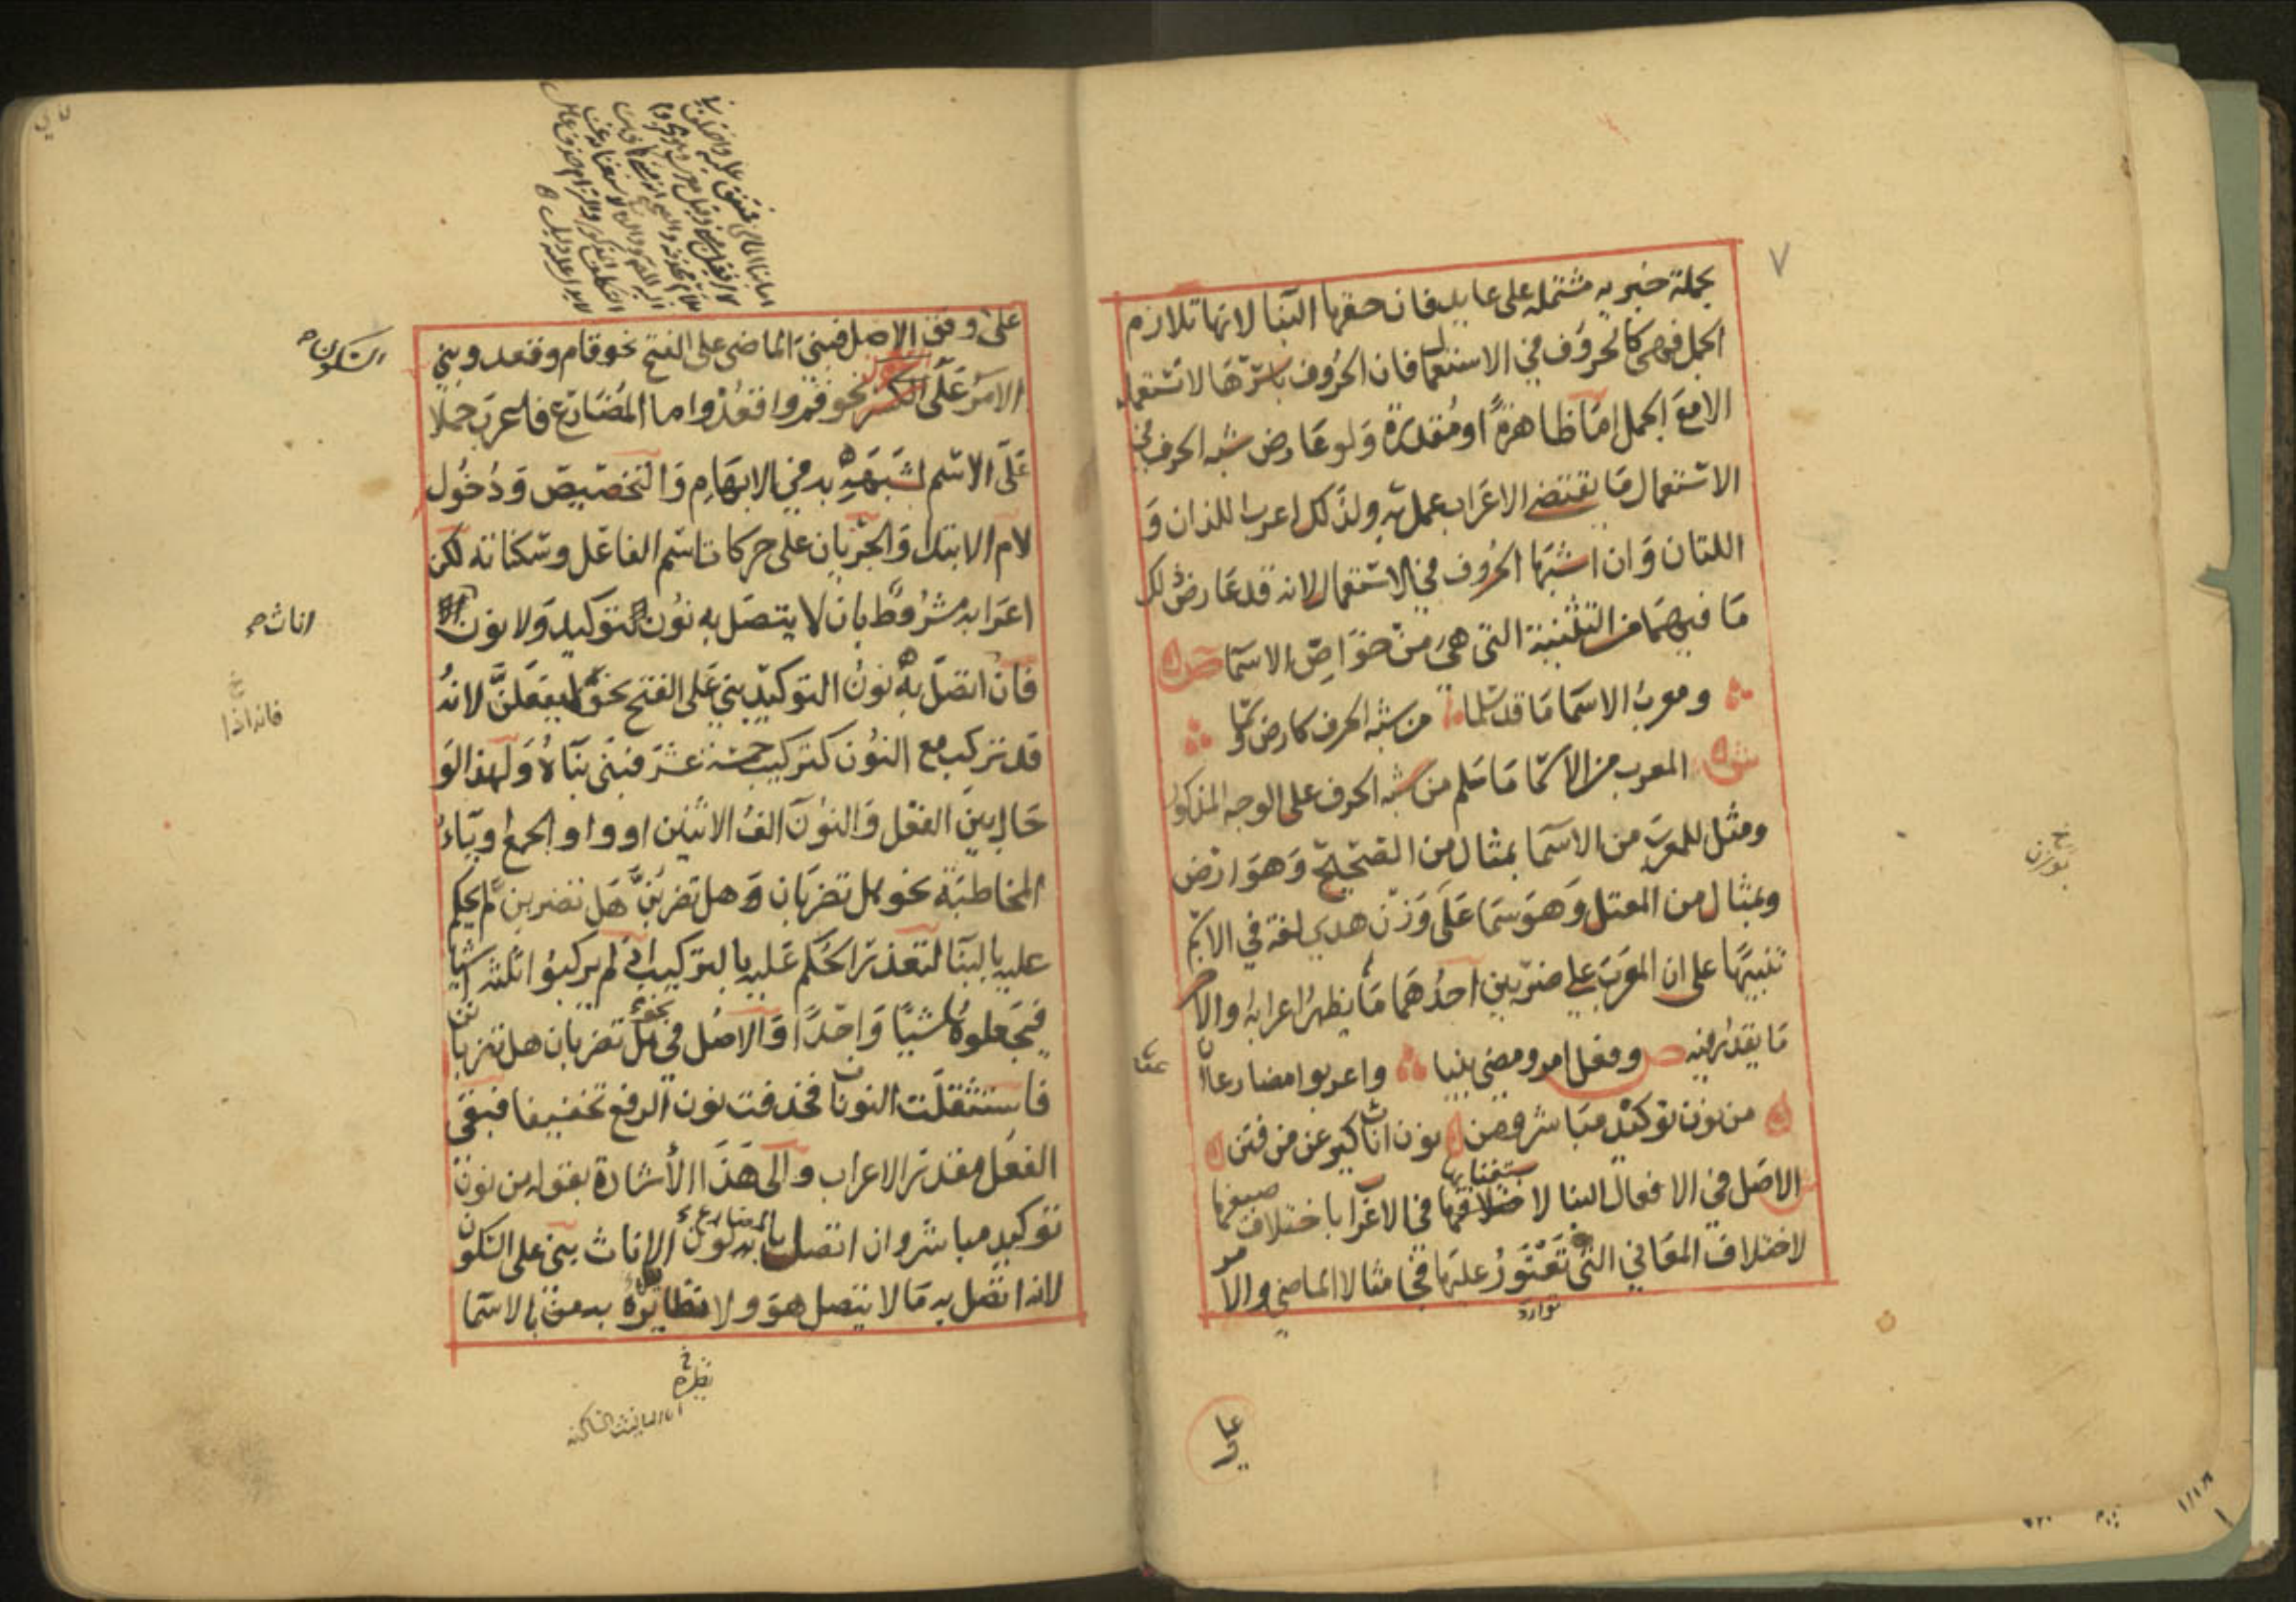 ٧
بجملة خبريه مشتمله على عايد فان حقها البنا لانها تلازم
الجمل فهى كالحروف في الاستعمال فان الحروف باسرها لا تستعمل
الا مع الجمل اما ظاهرة او مقدرة ولو عارض شبه الحرف في
الاستعمال ما يقتضى الاعراب عمل به ولذلك اعرب اللذان و
اللتان وان اشبها الحروف في الاستعمال لانه قد عارض ذلك
ما فيهما من التثنية التى هى من خواص الاسما ص
ومعرب الاسما ما قد سلما من شبه الحرف كارض وسما
ش المعرب من الاسما ما سلم من شبه الحرف على الوجه المذكور
ومثل للمعرب من الاسما بمثال من الصحيح وهو ارض
وبمثال من المعتل وهو سما على وزن هدي لغة في الاسم
تنبيها على ان المعرب على ضربين احدهما ما يظهر اعرابه والاخر
ما يقدر فيه ص وفعل امر ومضى بنيا واعربوا مضارعا ان
عريا
من نون توكيد مباشر ومن نون اناث كيرعن من فتن
الاصل في الافعال البنا لاستغنايها في الاعراب باختلاف صيغها
لاختلاف المعاني التى تعتور عليها فجا مثالا الماضي والامر
توارد
على
على وفق الاصل فبنى الماضى على الفتح نحو قام وقعد وبنى
الامر على السكون نحو قم واقعد واما المضارع فاعرب حملا
السكون صح
على الاسم لشبهه به في الابهام والتخصيص ودخول
لام الابتدا والجريان على حركات اسم الفاعل وسكناته لكن
اعرابه مشروط بان لا يتصل به نون التوكيد ولا نون
اناث صح
فان اتصل به نون التوكيد بنى على الفتح نحو ليفعلن لانه
خ
فانه اذا
قد تركب مع النون كتركيب خمسة عشر فبنى بناه ولهذا لو
حال بين الفعل والنون الف الاثنين او واو الجمع او ياء
المخاطبة نحو هل تضربان وهل تضربن هل تضربن لم يحكم
عليه بالبنا لتعذر الحكم عليه بالتركيب اذ لم يركبوا ثلثه اشيا
فيجعلوها شيا واحدا والاصل في نحو هل تضربان هل تضربانن
فاستثقلت النونات فحذفت نون الرفع تخفيفا فبقى
الفعل مقدر الاعراب والى هذا الاشارة بقوله من نون
توكيد مباشر وان اتصل بالمضارع نون الاناث بنى على السكون
لانه اتصل به ما لا يتصل هو ولا نظيره به من الاسما
خ
نظيره
تا التانيث الساكنه